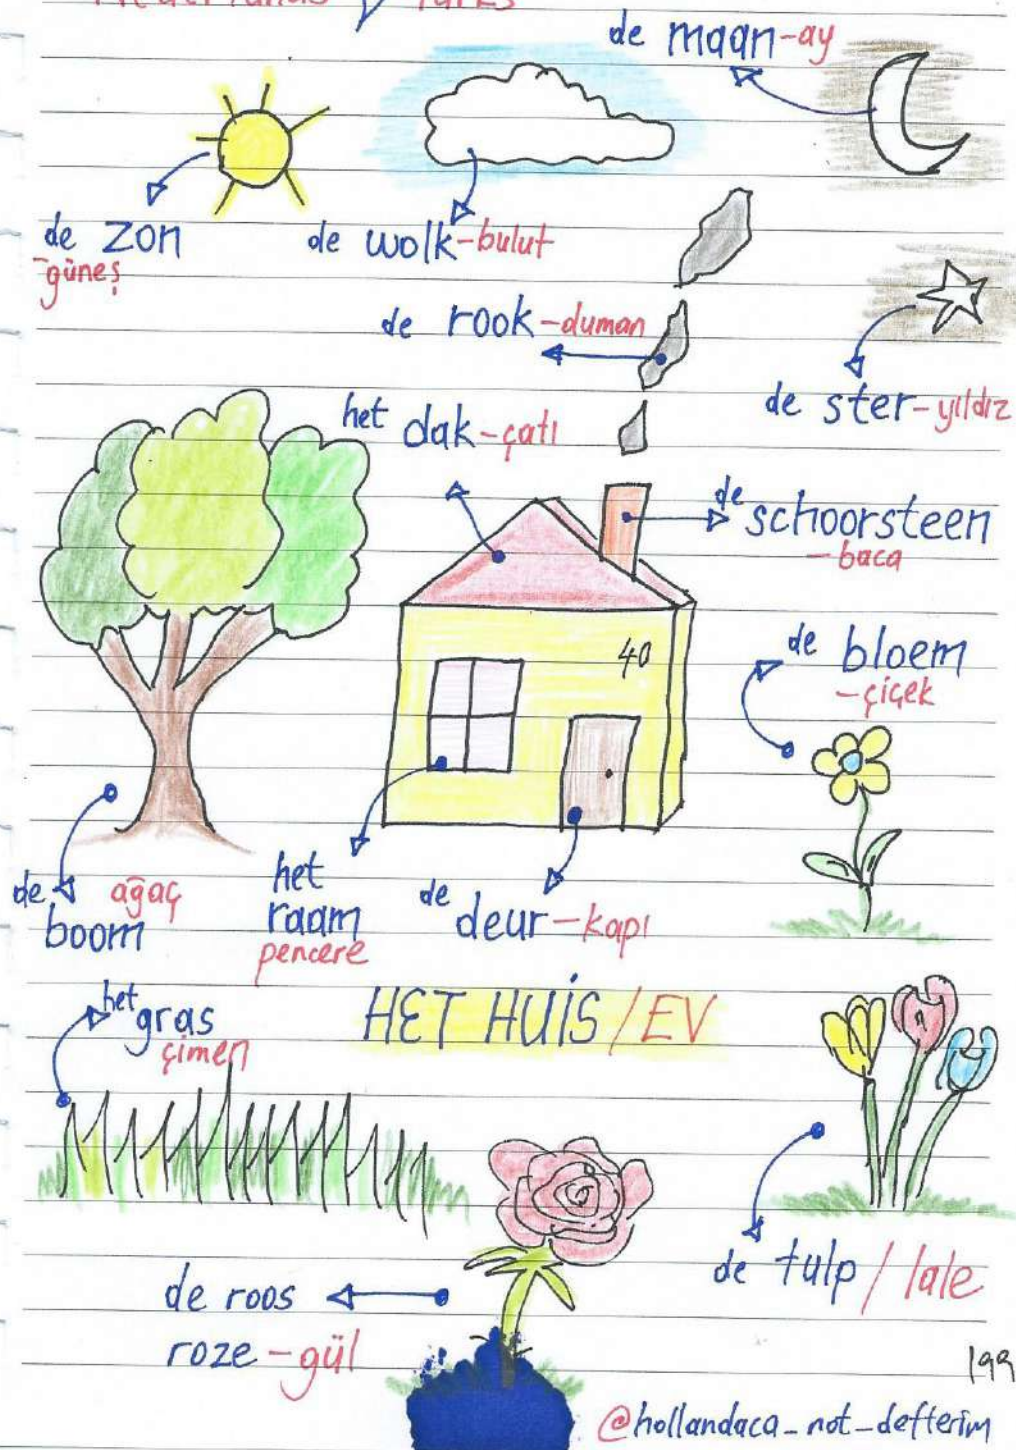 de maan-ay
de zon
-güneş
de wolk-bulut
de rook-duman
de ster-yıldız
het dak-çatı
de schoorsteen
-baca
40
de bloem
-çiçek
de boom
ağaç
het
raam
pencere
de deur-kapı
het gras
çimen
HET HUİS/EV
de tulp/lale
de roos
roze-gül
199
@hollandaca_not_defterim